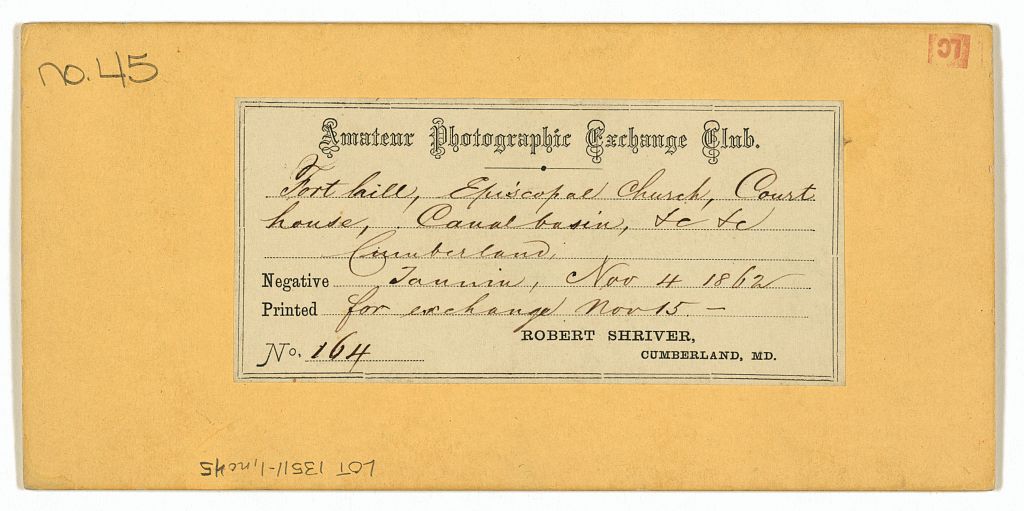 no. 45
LC
Amateur Photographic Exchange Club.
Fort hill, Episcopal Church, Court
house, Canal basin, &c &c
Cumberland,
Negative Tannin, Nov 4 1862
Printed for exchange Nov 15. —
ROBERT SHRIVER,
No. 164 CUMBERLAND, MD.
LOT 13511-1, no 45